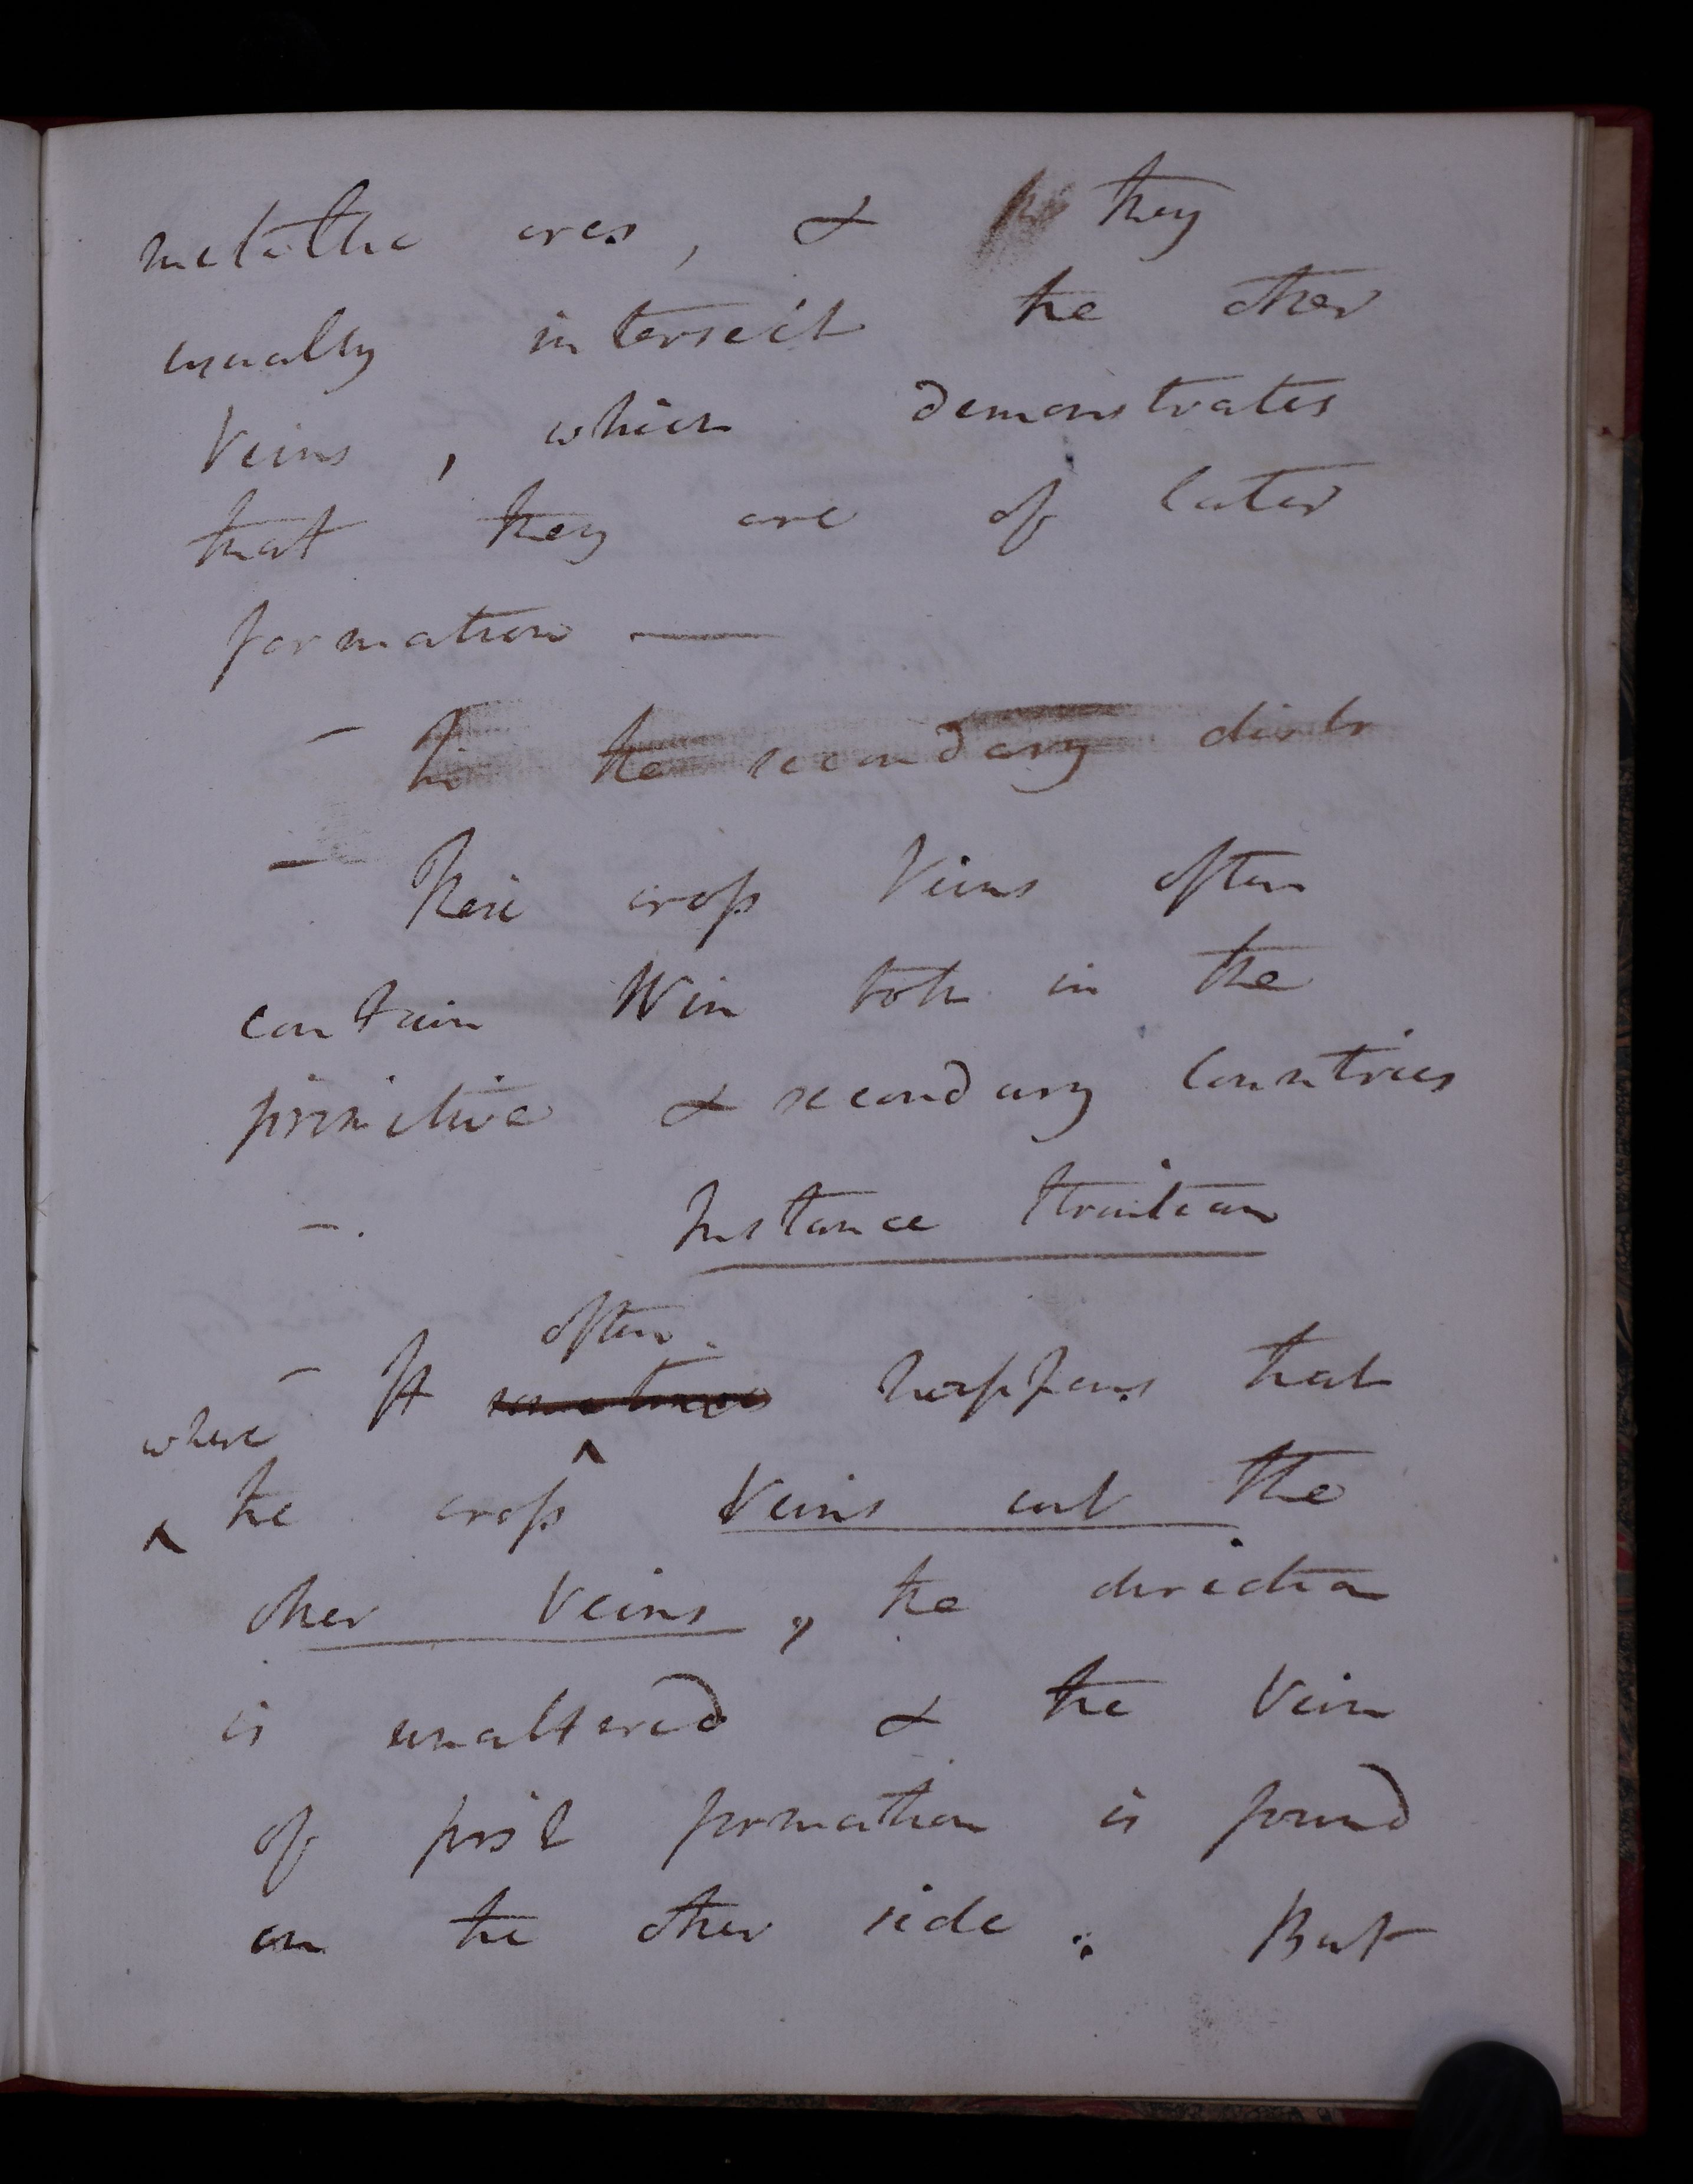 metallic ores, & they
usually intersect the other
Veins, which demonstrates
that they are of later
formation —
- In the secondary distr
- These cross Veins often
contain Win both in the
primitive & secondary Countries
-. Instance Strontian
often
- It sometimes happens that
where
the cross Veins cut the
other Veins, the direction
is unaltered & the Vein
of first formation is found
on the other side. But